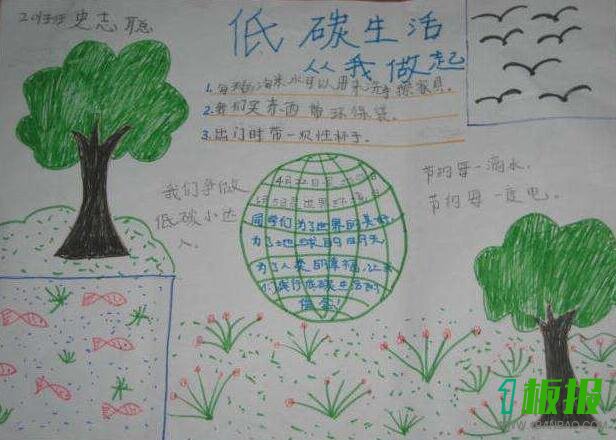 史志聪
低碳生活
从我做起
1.每天淘米水可以用来洗手擦家具。
2.我们买东西带环保袋。
3.出门时带一次性杯子。
我们争做
低碳小达
人。
节约每一滴水。
节约每一度电。
4月22日是
6月5日是世界环境日
同学们为了世界的美好,
为了地球的明天
为了人类的幸福,让我
们履行低碳生活的
信念!
1板报
www.1BANBAO.COM